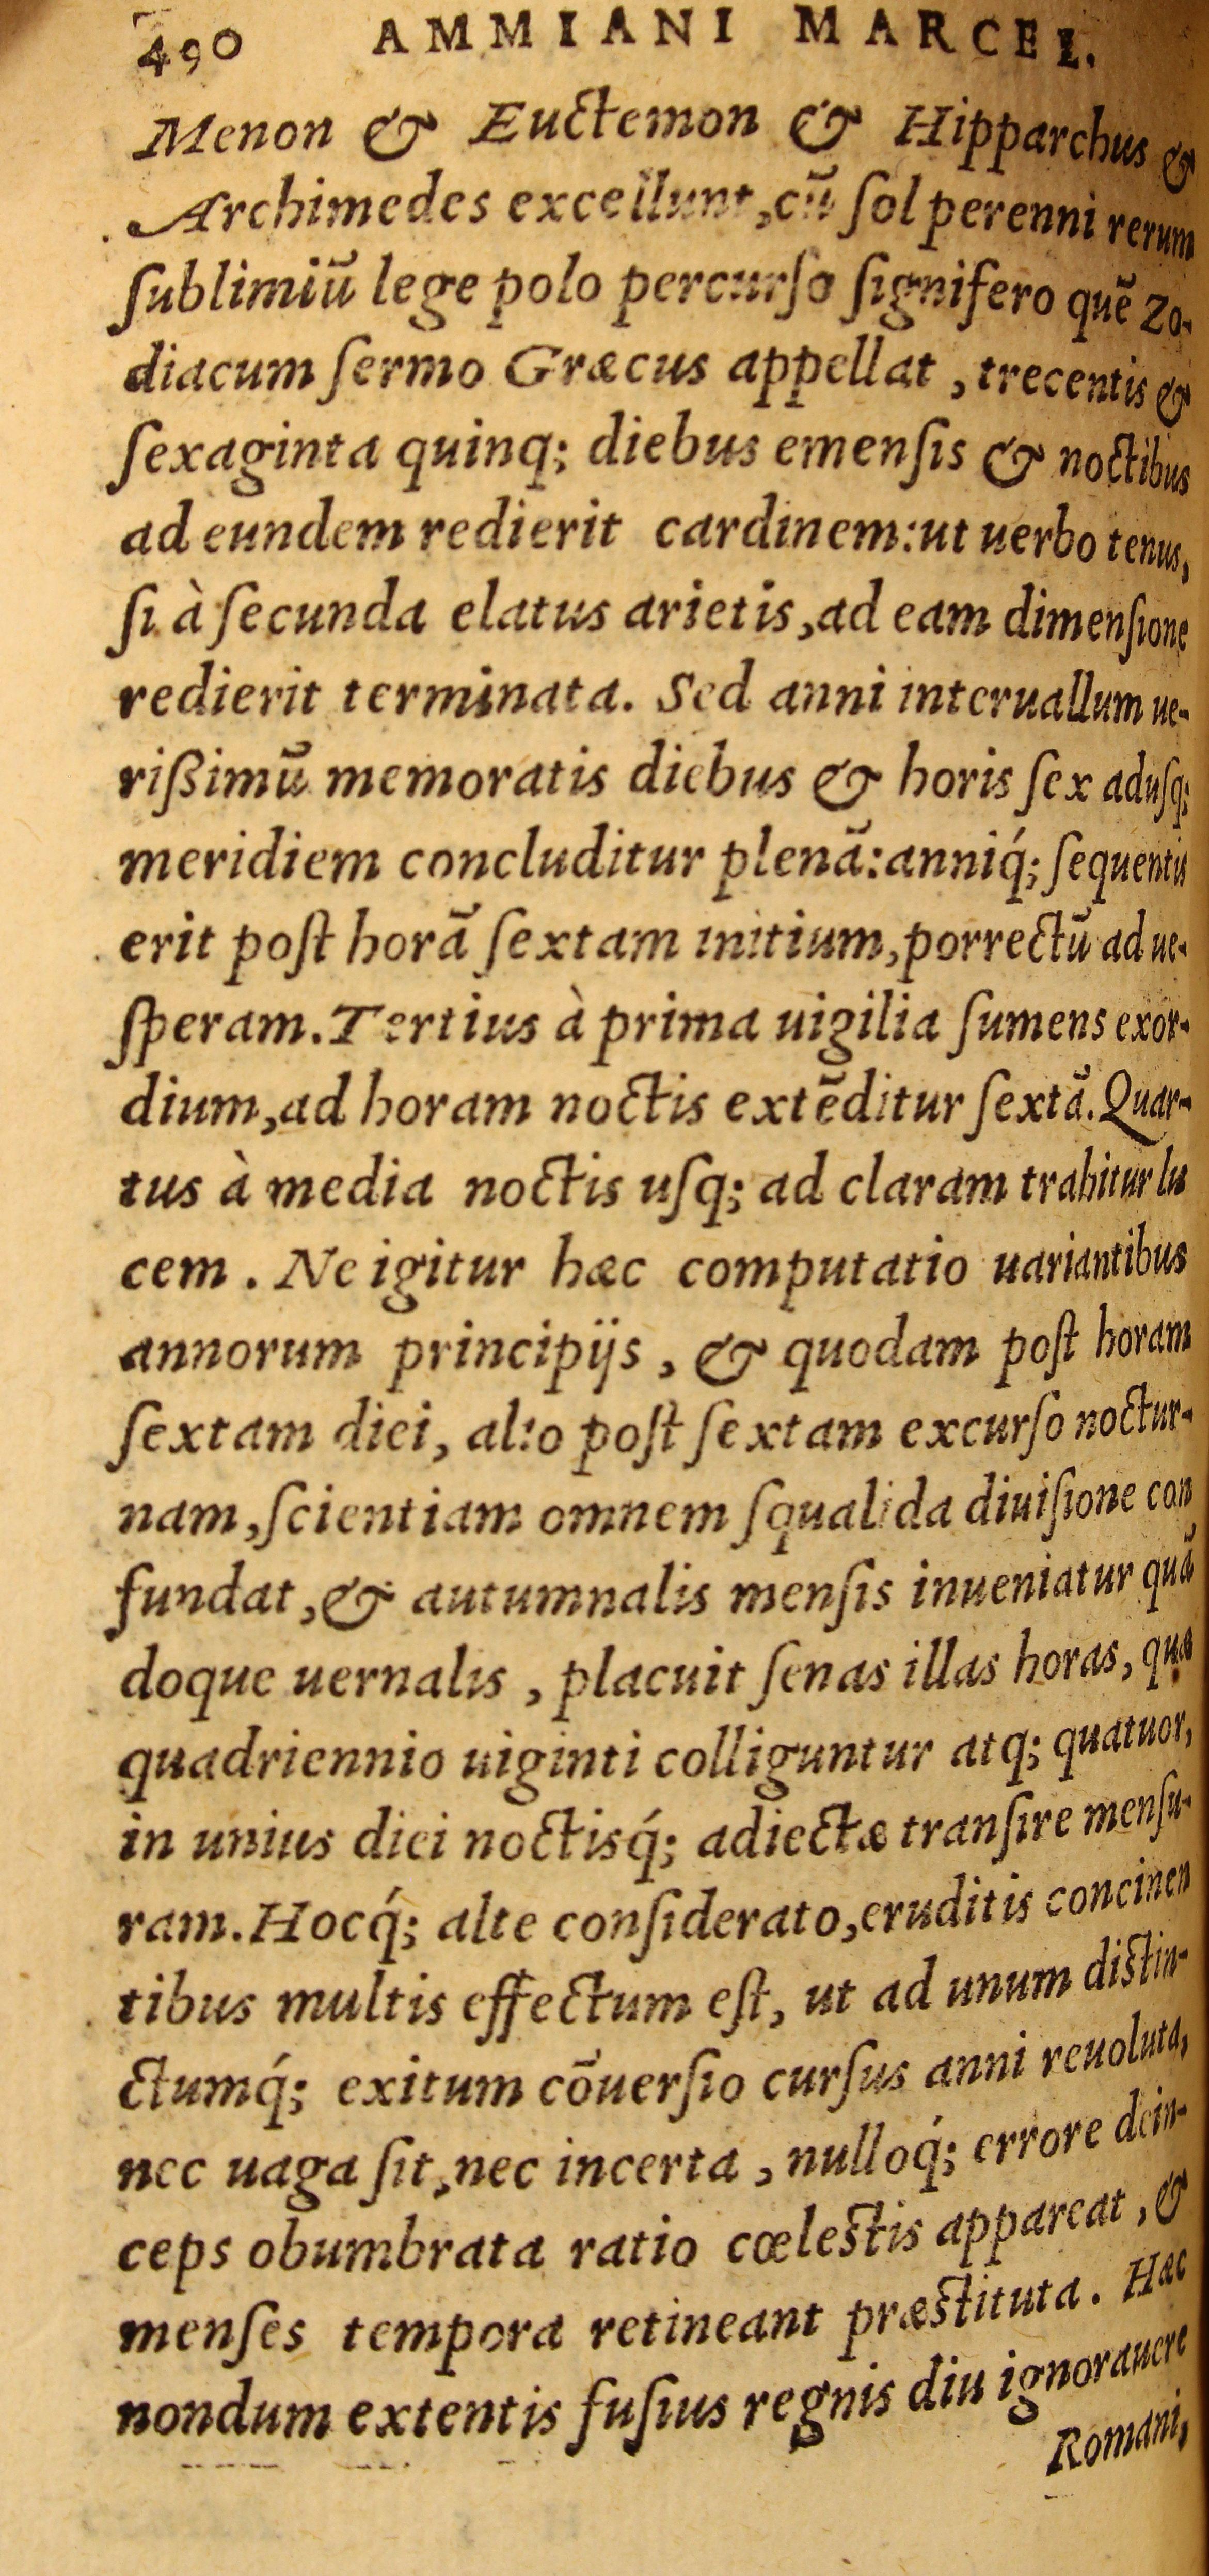 490 AMMIANI MARCEL.
Menon & Euctemon & Hipparchus &
Archimedes excellunt, cū ſol perenni rerum
ſublimiū lege polo percurſo ſignifero quē Zo-
diacum ſermo Græcus appellat, trecentis &
ſexaginta quinq; diebus emenſis & noctibus
ad eundem redierit cardinem: ut uerbo tenus,
ſi à ſecunda elatus arietis, ad eam dimenſione
redierit terminata. Sed anni interuallum ue-
rißimū memoratis diebus & horis ſex aduſq;
meridiem concluditur plenā: anniq́; ſequentis
erit poſt horā ſextam initium, porrectū ad ue-
ſperam. Tertius à prima uigilia ſumens exor-
dium, ad horam noctis extēditur ſextā. Quar-
tus à media noctis uſq; ad claram trahitur lu
cem. Ne igitur hæc computatio uariantibus
annorum principijs, & quodam poſt horam
ſextam diei, alio poſt ſextam excurſo noctur-
nam, ſcientiam omnem ſqualida diuiſione con
fundat, & autumnalis menſis inueniatur quā
doque uernalis, placuit ſenas illas horas, quæ
quadriennio uiginti colliguntur atq; quatuor,
in unius diei noctisq́; adiectæ tranſire menſu-
ram. Hocq́; alte conſiderato, eruditis concinen
tibus multis effectum eſt, ut ad unum diſtin-
ctumq́; exitum cōuerſio curſus anni reuoluta,
nec uaga ſit, nec incerta, nulloq́; errore dein-
ceps obumbrata ratio cœleſtis appareat, &
menſes tempora retineant præſtituta. Hæc
nondum extentis fuſius regnis diu ignorauere
Romani,